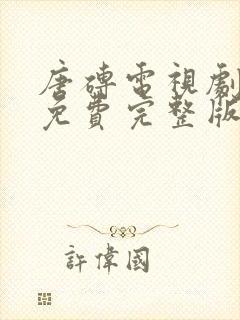 唐磚電視劇
免費完整版
許偉國